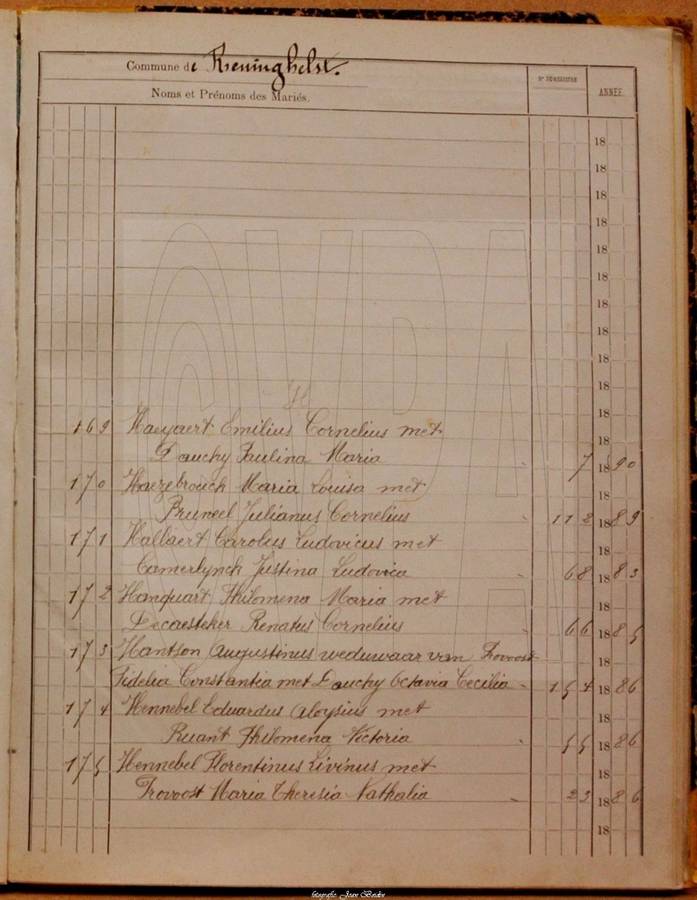 Commune de Reninghelst.
Noms et Prénoms des Mariés. ANNÉE
18
18
18
18
18
18
18
18
18
18
H
169 Haeyaert Emilius Cornelius met 18
Dauchy Paulina Maria 7 1890
170 Haezebrouck Maria Louisa met 18
Pruneel Julianus Cornelius 112 1889
171 Hallaert Carolus Ludovicus met 18
Camerlynck Justina Ludovica 68 1883
172 Hanquart Philomena Maria met 18
Decaesteker Renatus Cornelius 66 1885
173 Hantson Augustinus weduwaar van Provoost 18
Fidelia Constantia met Dauchy Octavia Cecilia 154 1886
174 Hennebel Eduardus Aloysius met 18
Ruant Philomena Victoria 55 1886
175 Hennebel Florentinus Livinus met 18
Provoost Maria Theresia Nathalia 23 1886
18
©VBA
fotografie: Joan